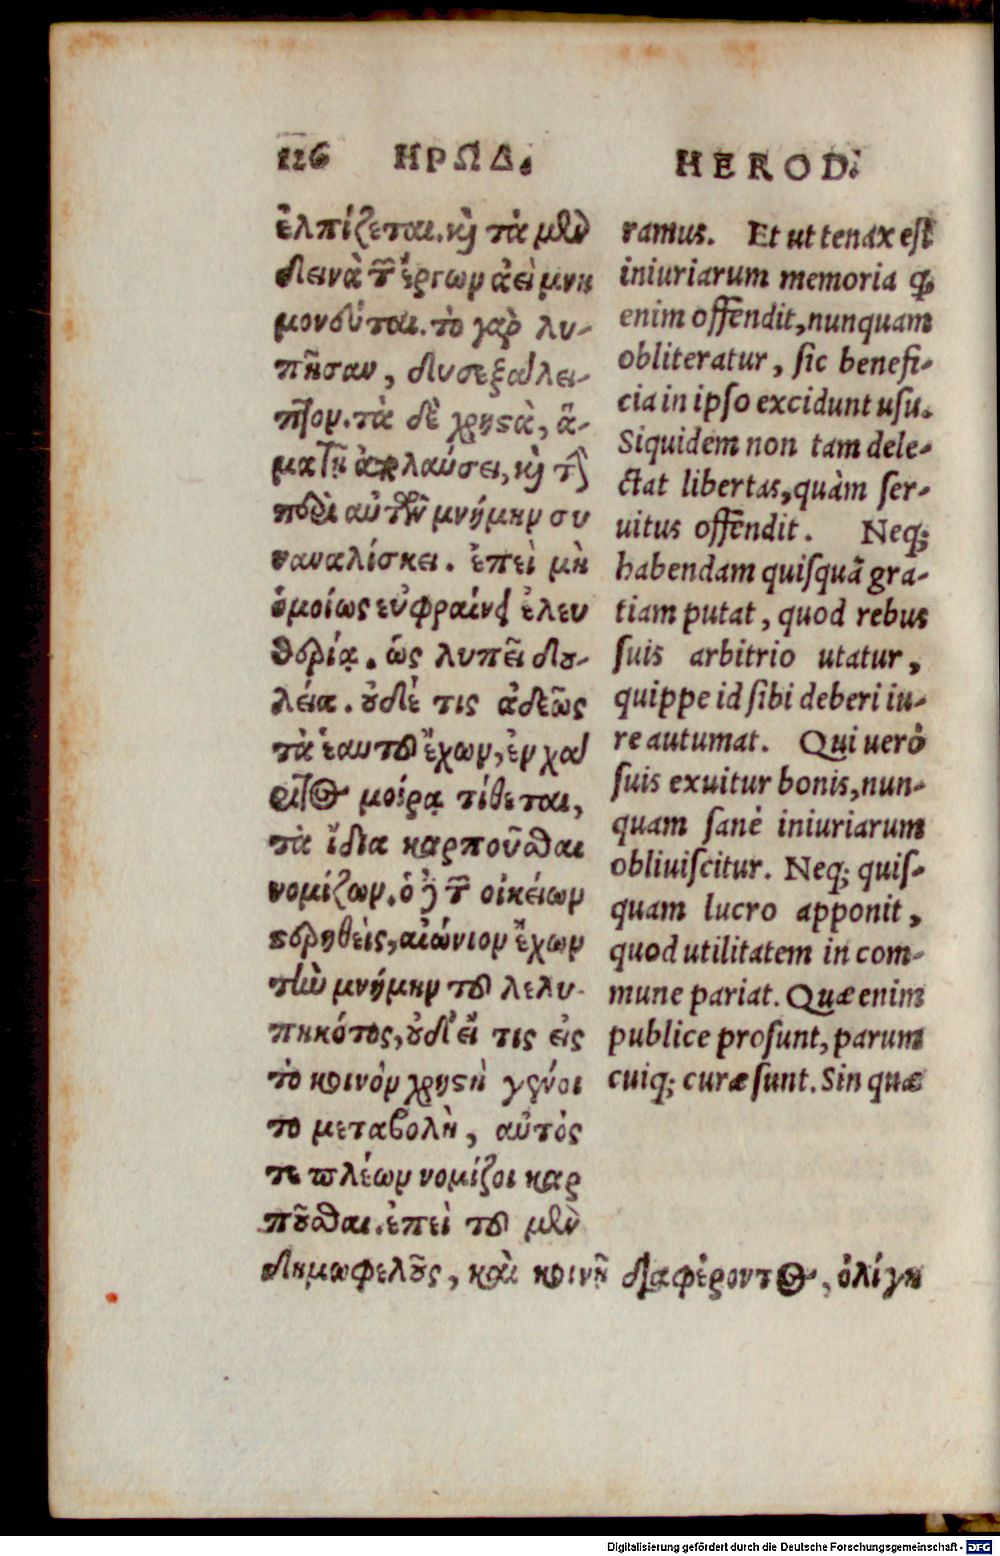 116 ΗΡΩΔ. HEROD.
ἐλπίζεται. καὶ τὰ μὲν
δεινὰ τῶν ἔργων ἀεὶ μνη
μονεύεται. τὸ γὰρ λυ-
πῆσαν, δυσεξαλει-
πτον. τὰ δὲ χρηστὰ, ἅ-
μα τῇ ἀπολαύσει, καὶ τὴν
περὶ αὐτῶν μνήμην συ
ναναλίσκει. ἐπεὶ μὴ
ὁμοίως εὐφραίνει ἐλευ
θερία. ὡς λυπεῖ δου-
λεία. οὐδέ τις ἀδεῶς
τὰ ἑαυτοῦ ἔχων, ἐν χά
ριτος μοίρᾳ τίθεται,
τὰ ἴδια καρποῦσθαι
νομίζων. ὁ δὲ τῶν οἰκείων
στερηθεὶς, αἰώνιον ἔχων
τὴν μνήμην τοῦ λελυ-
πηκότος, οὐδ' εἴ τις εἰς
τὸ κοινὸν χρηστὴ γένοι
το μεταβολὴ, αὐτός
τι πλέων νομίζοι καρ
ποῦσθαι. ἐπεὶ τοῦ μὲν
δημωφελοῦς, καὶ κοινῇ διαφέροντος, ὀλίγη
ramus. Et ut tenax est
iniuriarum memoria q̃
enim offendit, nunquam
obliteratur, sic benefi-
cia in ipso excidunt usu.
Siquidem non tam dele-
ctat libertas, quàm ser-
uitus offendit. Neq;
habendam quisquã gra-
tiam putat, quod rebus
suis arbitrio utatur,
quippe id sibi deberi iu-
re autumat. Qui uerò
suis exuitur bonis, nun-
quam sanè iniuriarum
obliuiscitur. Neq; quis-
quam lucro apponit,
quod utilitatem in com-
mune pariat. Quæ enim
publice prosunt, parum
cuiq; curæ sunt. Sin quæ
Digitalisierung gefördert durch die Deutsche Forschungsgemeinschaft - DFG